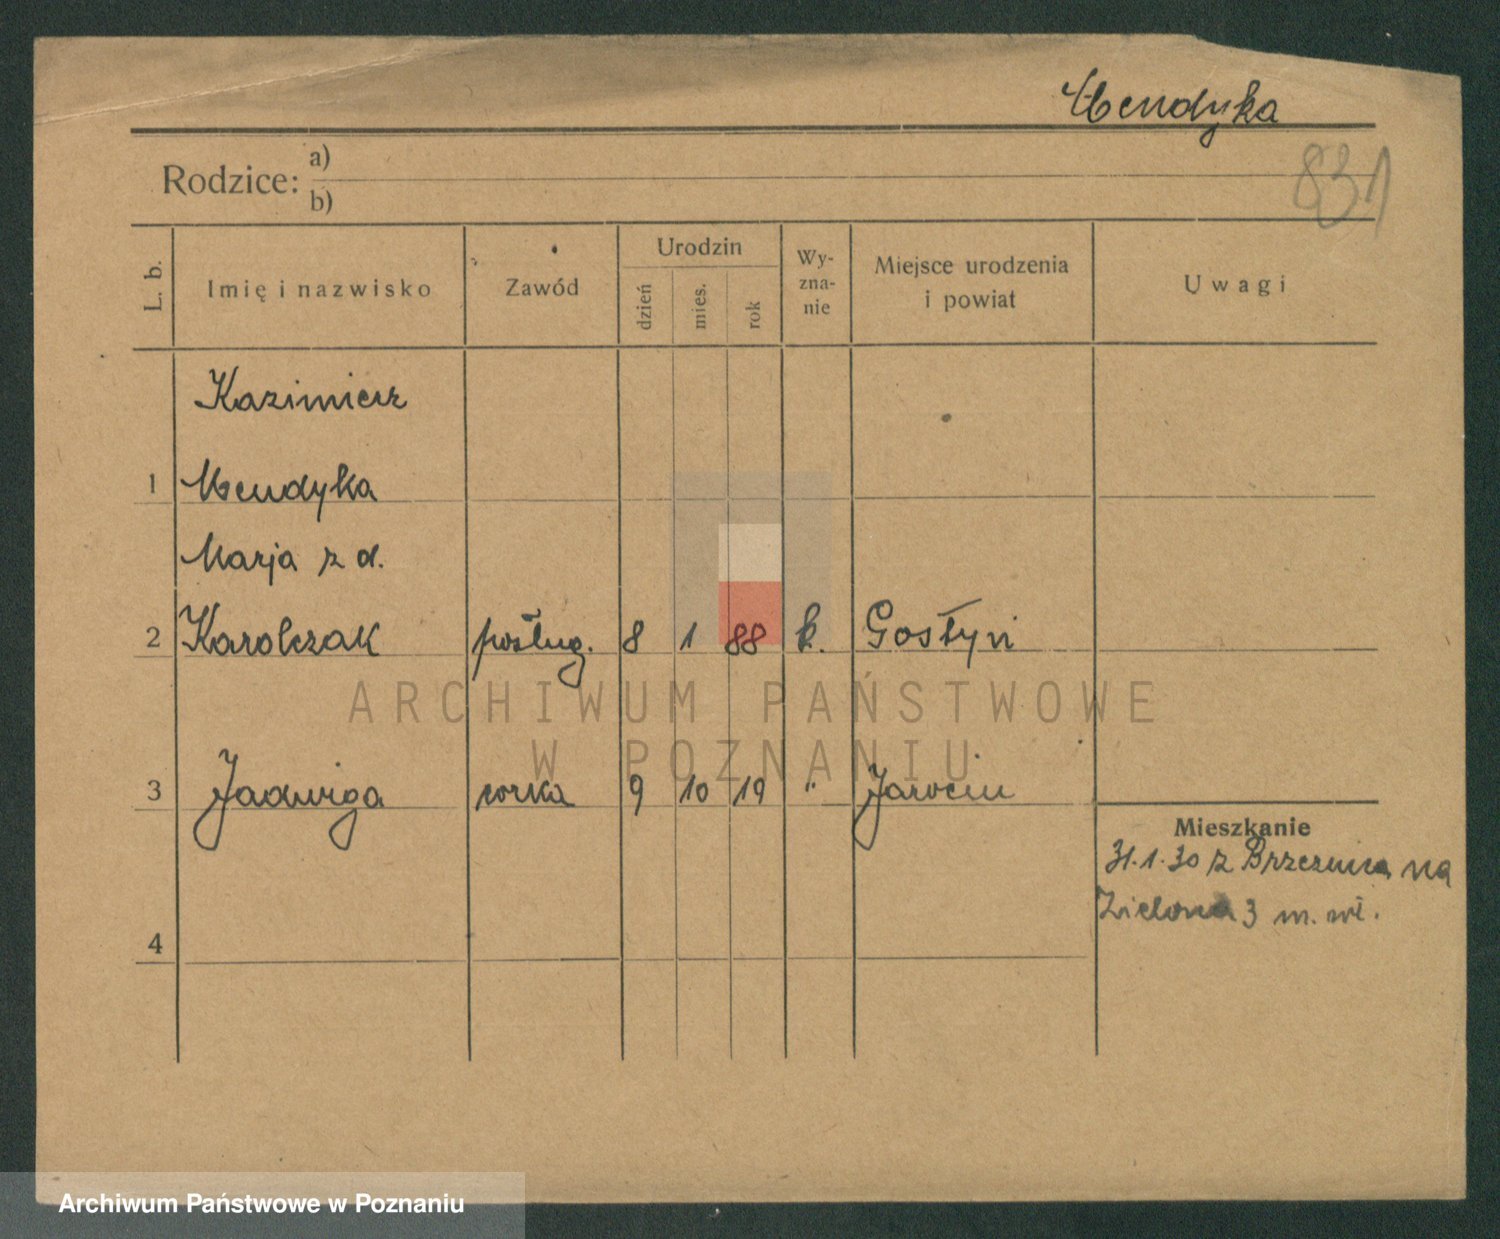 Mendyka
831
Rodzice: a)
b)
L. b. Imię i nazwisko Zawód Urodzin dzień mies. rok Wy-zna-nie Miejsce urodzenia i powiat Uwagi
Kazimierz
1 Mendyka
Marja z d.
2 Karolczak posług. 8 1 88 k. Gostyń
ARCHIWUM PAŃSTWOWE
W POZNANIU
3 Jadwiga corka 9 10 19 " Jarocin
Mieszkanie
31.1.30 z Brzezina na
Zielona 3 m. wł.
4
Archiwum Państwowe w Poznaniu